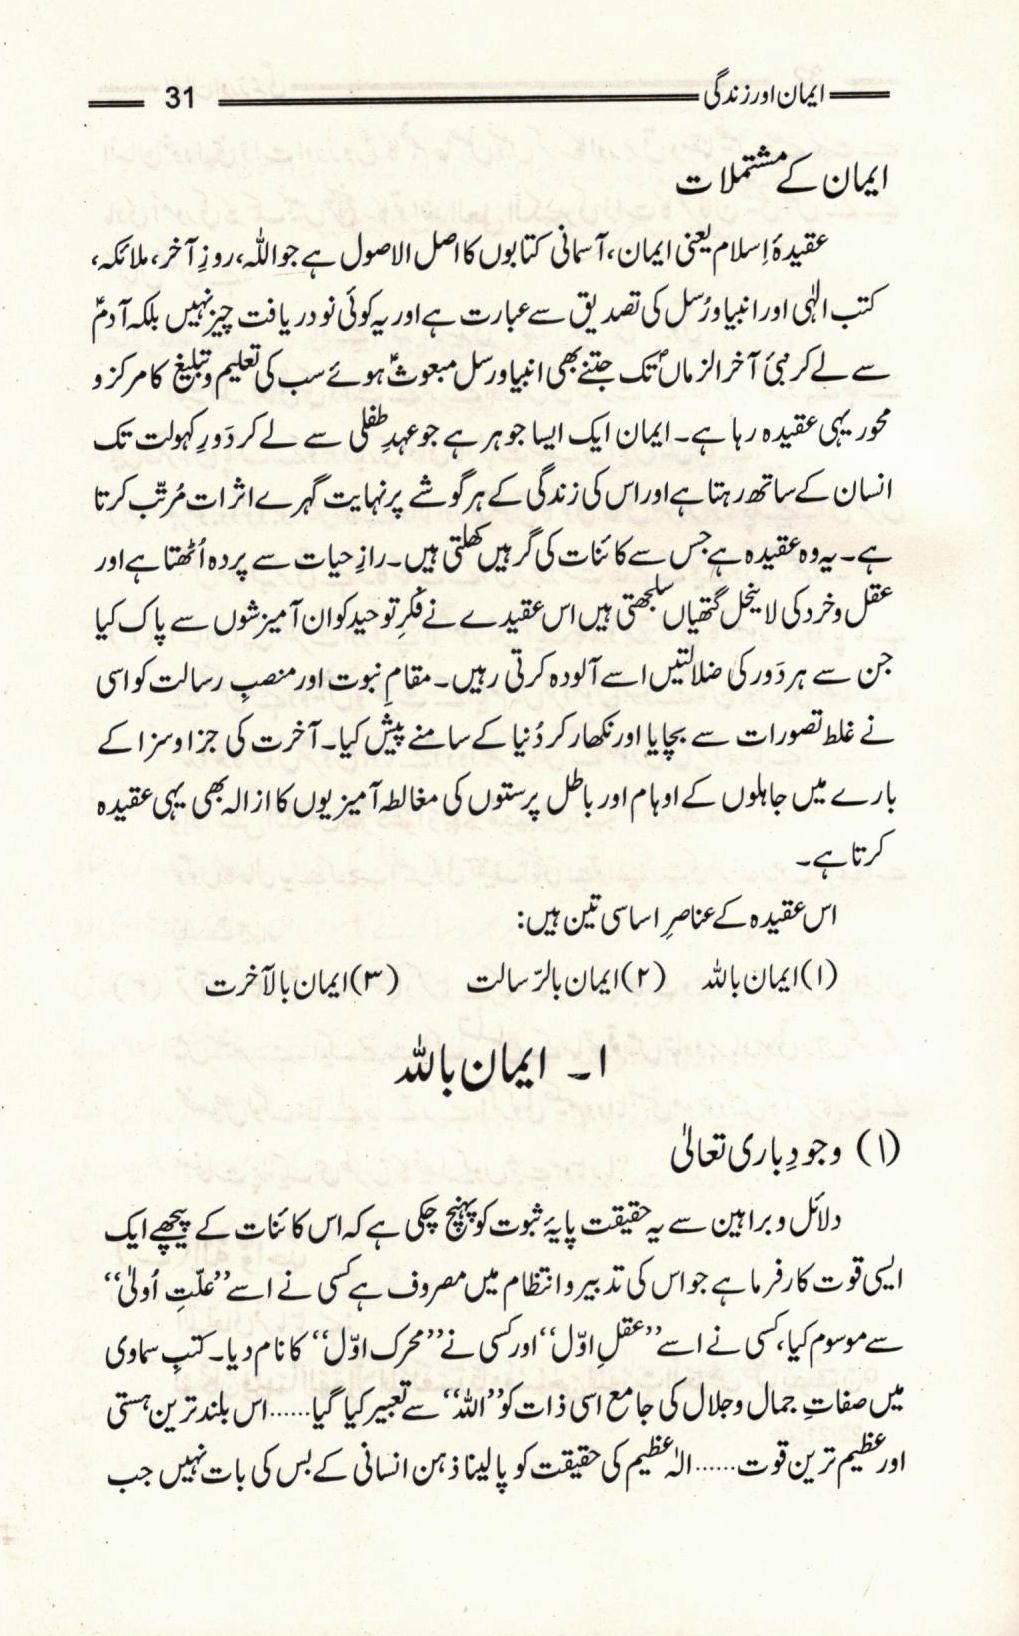 ایمان اور زندگی 31
ایمان کے مشتملات
عقیدۂ اِسلام یعنی ایمان، آسمانی کتابوں کا اصل الاصول ہے جو اللہ، روزِ آخر، ملائکہ،
کتب الٰہی اور انبیا و رُسل کی تصدیق سے عبارت ہے اور یہ کوئی نو دریافت چیز نہیں بلکہ آدمؑ
سے لے کر نبیٔ آخر الزماںؐ تک جتنے بھی انبیا و رسل مبعوثؑ ہوئے سب کی تعلیم و تبلیغ کا مرکز و
محور یہی عقیدہ رہا ہے۔ ایمان ایک ایسا جوہر ہے جو عہدِ طفلی سے لے کر دَورِ کہولت تک
انسان کے ساتھ رہتا ہے اور اس کی زندگی کے ہر گوشے پر نہایت گہرے اثرات مُرتّب کرتا
ہے۔ یہ وہ عقیدہ ہے جس سے کائنات کی گرہیں کھلتی ہیں۔ رازِ حیات سے پردہ اُٹھتا ہے اور
عقل و خرد کی لاینحل گتھیاں سلجھتی ہیں اس عقیدے نے فکرِ توحید کو ان آمیزشوں سے پاک کیا
جن سے ہر دَور کی ضلالتیں اسے آلودہ کرتی رہیں۔ مقامِ نبوت اور منصبِ رسالت کو اسی
نے غلط تصورات سے بچایا اور نکھار کر دُنیا کے سامنے پیش کیا۔ آخرت کی جزا و سزا کے
بارے میں جاہلوں کے اوہام اور باطل پرستوں کی مغالطہ آمیزیوں کا ازالہ بھی یہی عقیدہ
کرتا ہے۔
اس عقیدہ کے عناصرِ اساسی تین ہیں:
(۱) ایمان باللہ (۲) ایمان بالرّسالت (۳) ایمان بالآخرت
۱۔ ایمان باللہ
(۱) وجودِ باری تعالیٰ
دلائل و براہین سے یہ حقیقت پایۂ ثبوت کو پہنچ چکی ہے کہ اس کائنات کے پیچھے ایک
ایسی قوت کارفرما ہے جو اس کی تدبیر و انتظام میں مصروف ہے کسی نے اسے ”علّتِ اُولیٰ“
سے موسوم کیا، کسی نے اسے ”عقلِ اوّل“ اور کسی نے ”محرک اوّل“ کا نام دیا۔ کتبِ سماوی
میں صفاتِ جمال و جلال کی جامع اسی ذات کو ”اللہ“ سے تعبیر کیا گیا...... اس بلند ترین ہستی
اور عظیم ترین قوت...... الٰہ عظیم کی حقیقت کو پا لینا ذہن انسانی کے بس کی بات نہیں جب